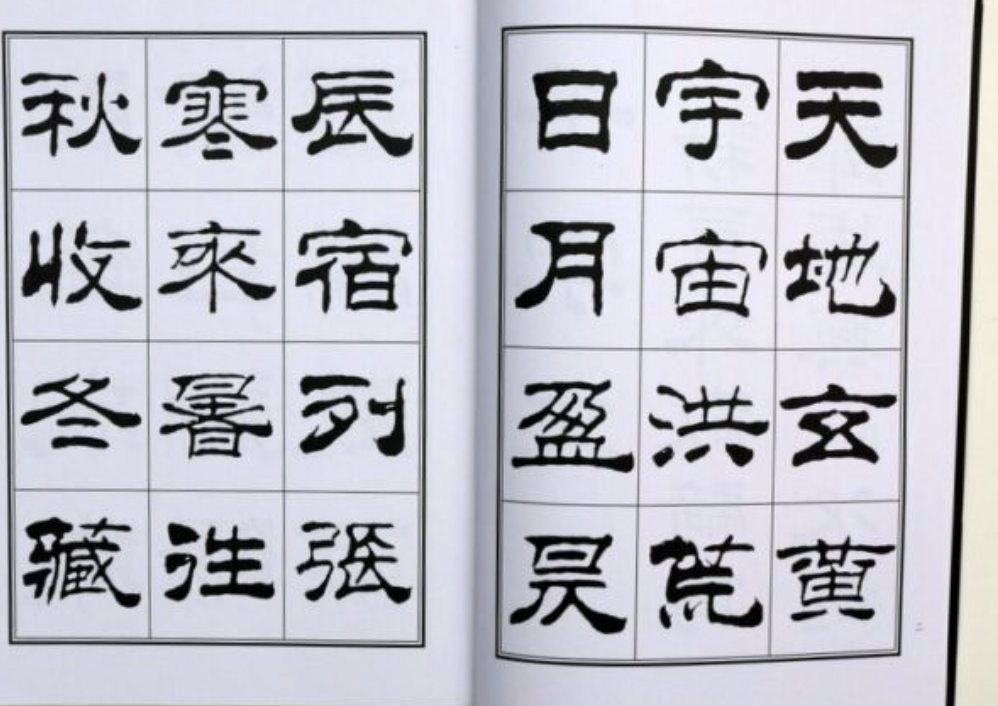 天地玄黄
宇宙洪荒
日月盈昃
辰宿列張
寒來暑往
秋收冬藏
二